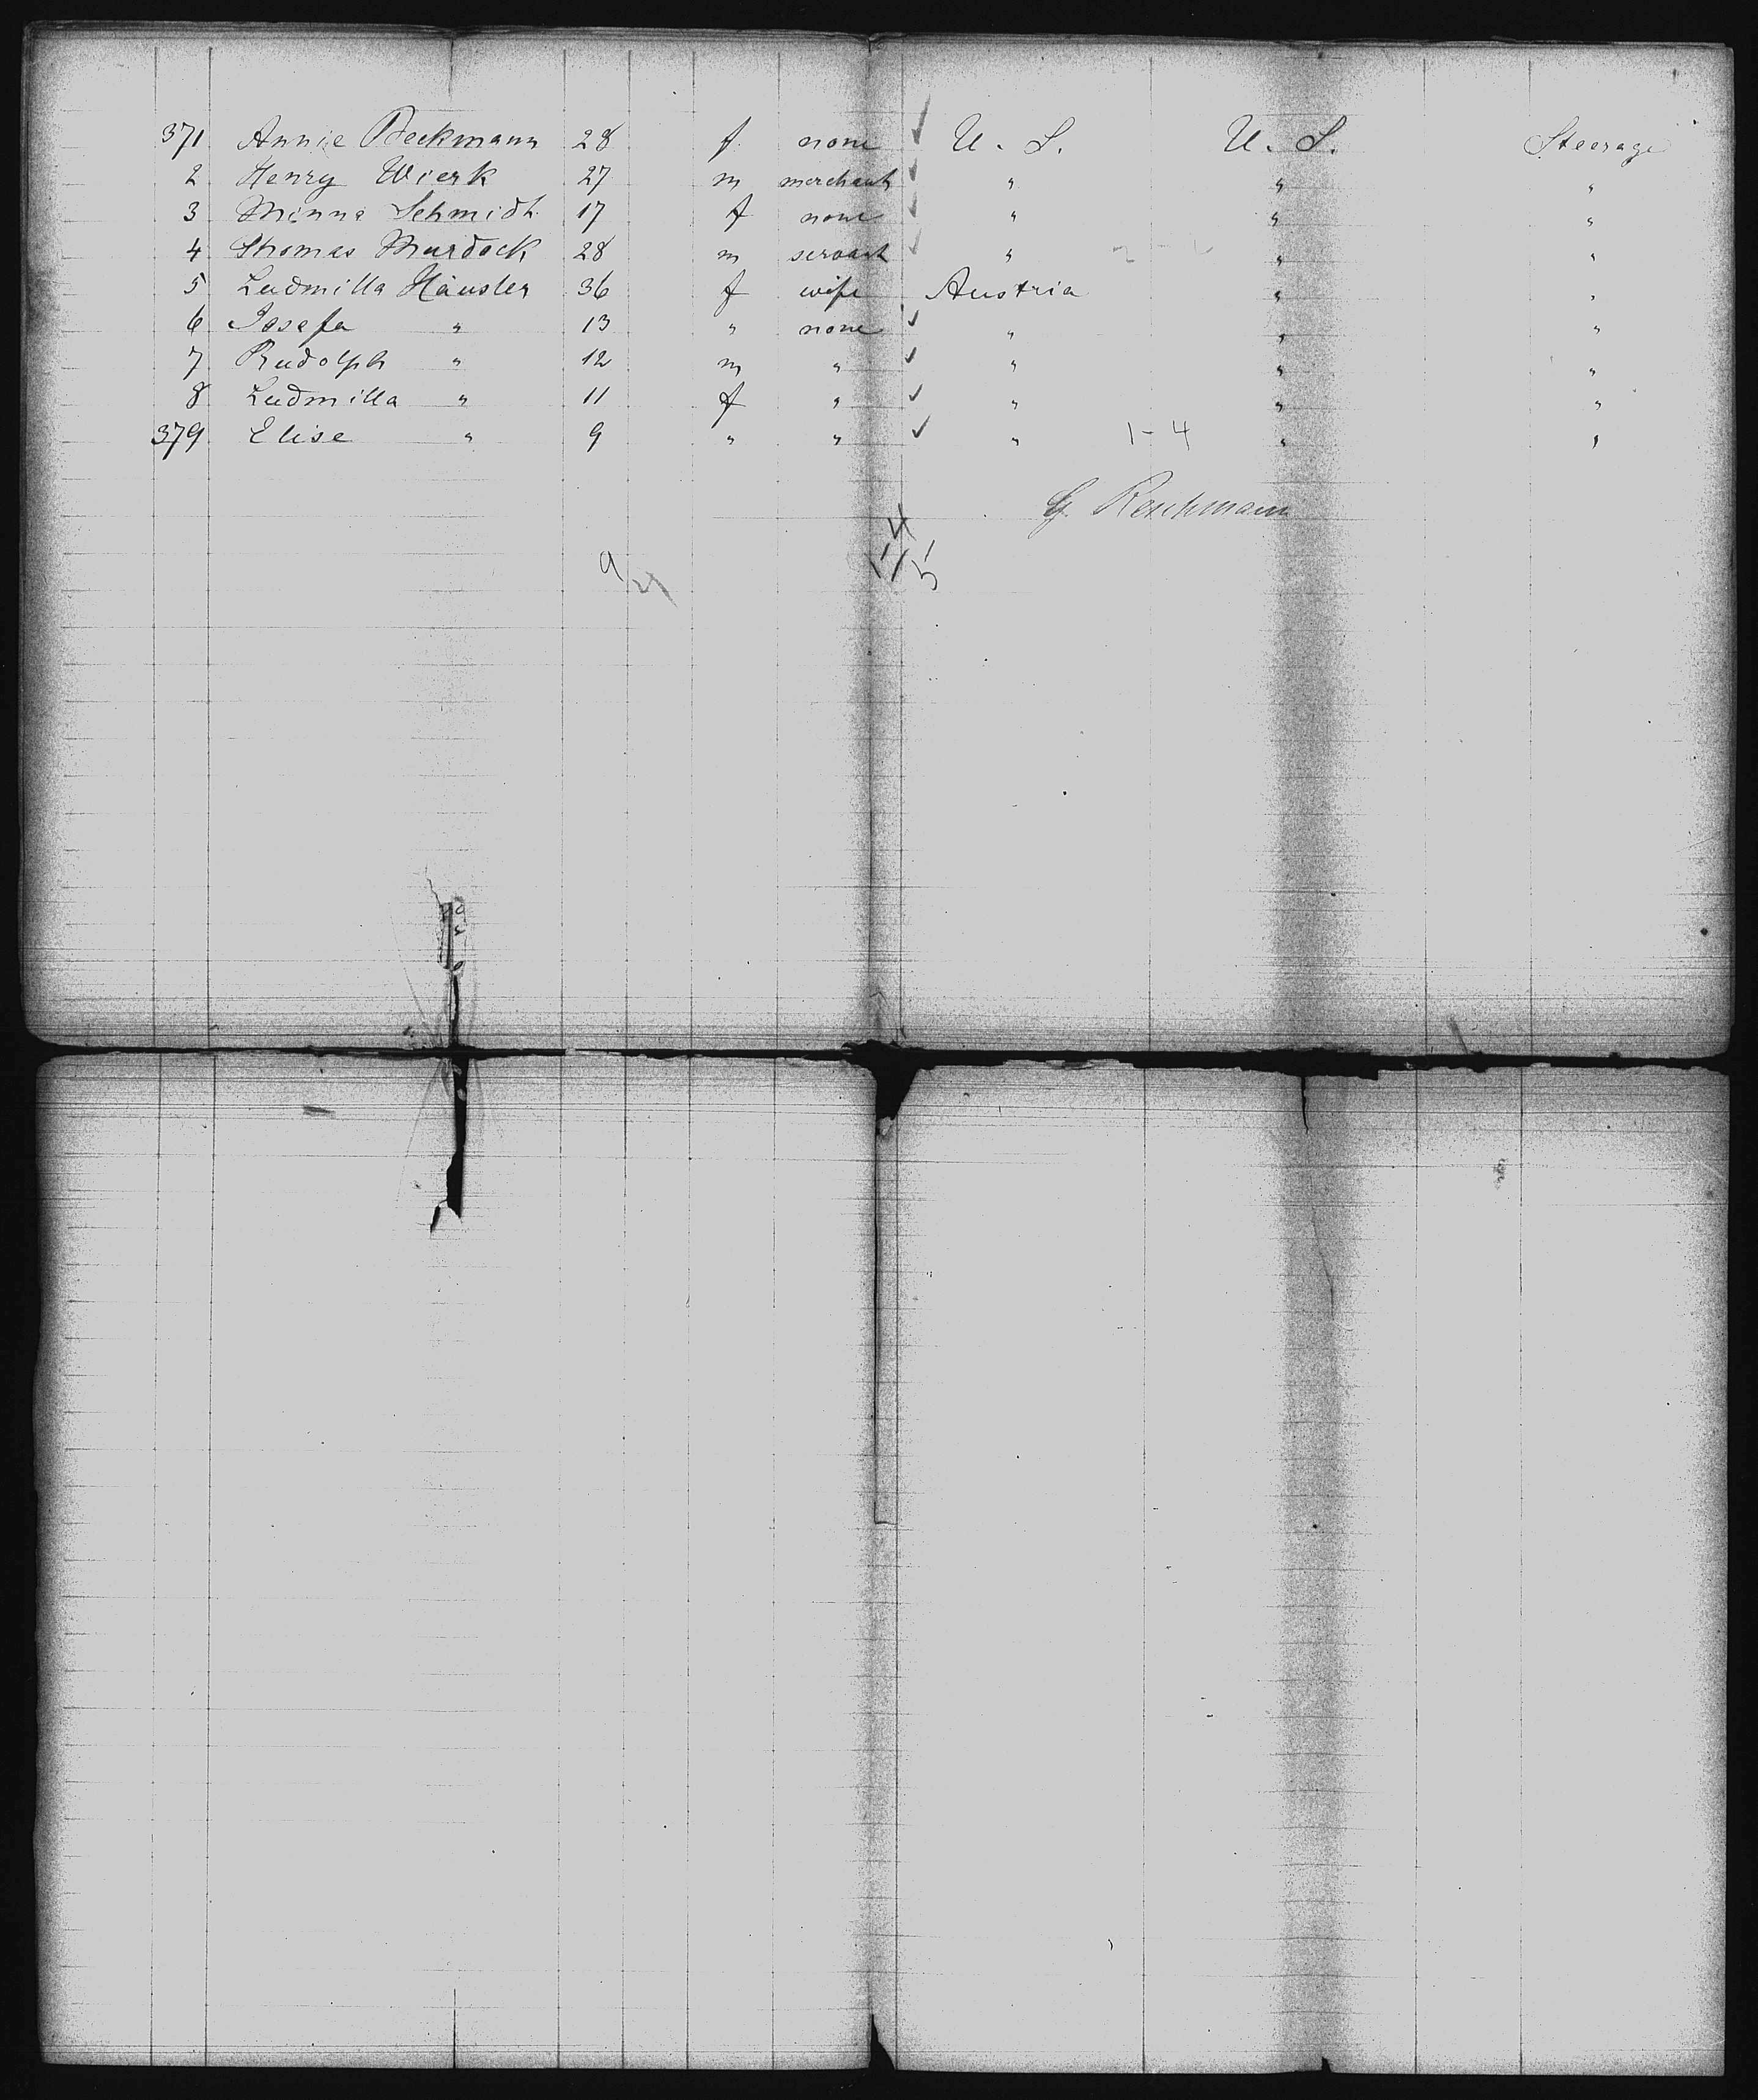 371 Annie Beckmann 28 f. none ✓ U. S. U. S. Steerage
2 Henry Wierk 27 m merchant ✓ " " "
3 Minna Schmidt 17 f none ✓ " " "
4 Thomas Murdock 28 m servant ✓ " " "
5 Ludmilla Häusler 36 f wife Austria " "
6 Josefa " 13 " none ✓ " " "
7 Rudolph " 12 m " ✓ " " "
8 Ludmilla " 11 f " ✓ " " "
379 Elise " 9 " " ✓ " 1-4 " "